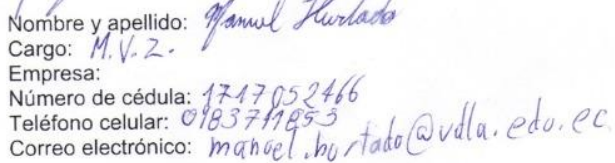 Nombre y apellido: Manuel Hurtado
Cargo: M.V.Z.
Empresa:
Número de cédula: 1717052466
Teléfono celular: 0983711853
Correo electrónico: manuel.hurtado@udla.edu.ec